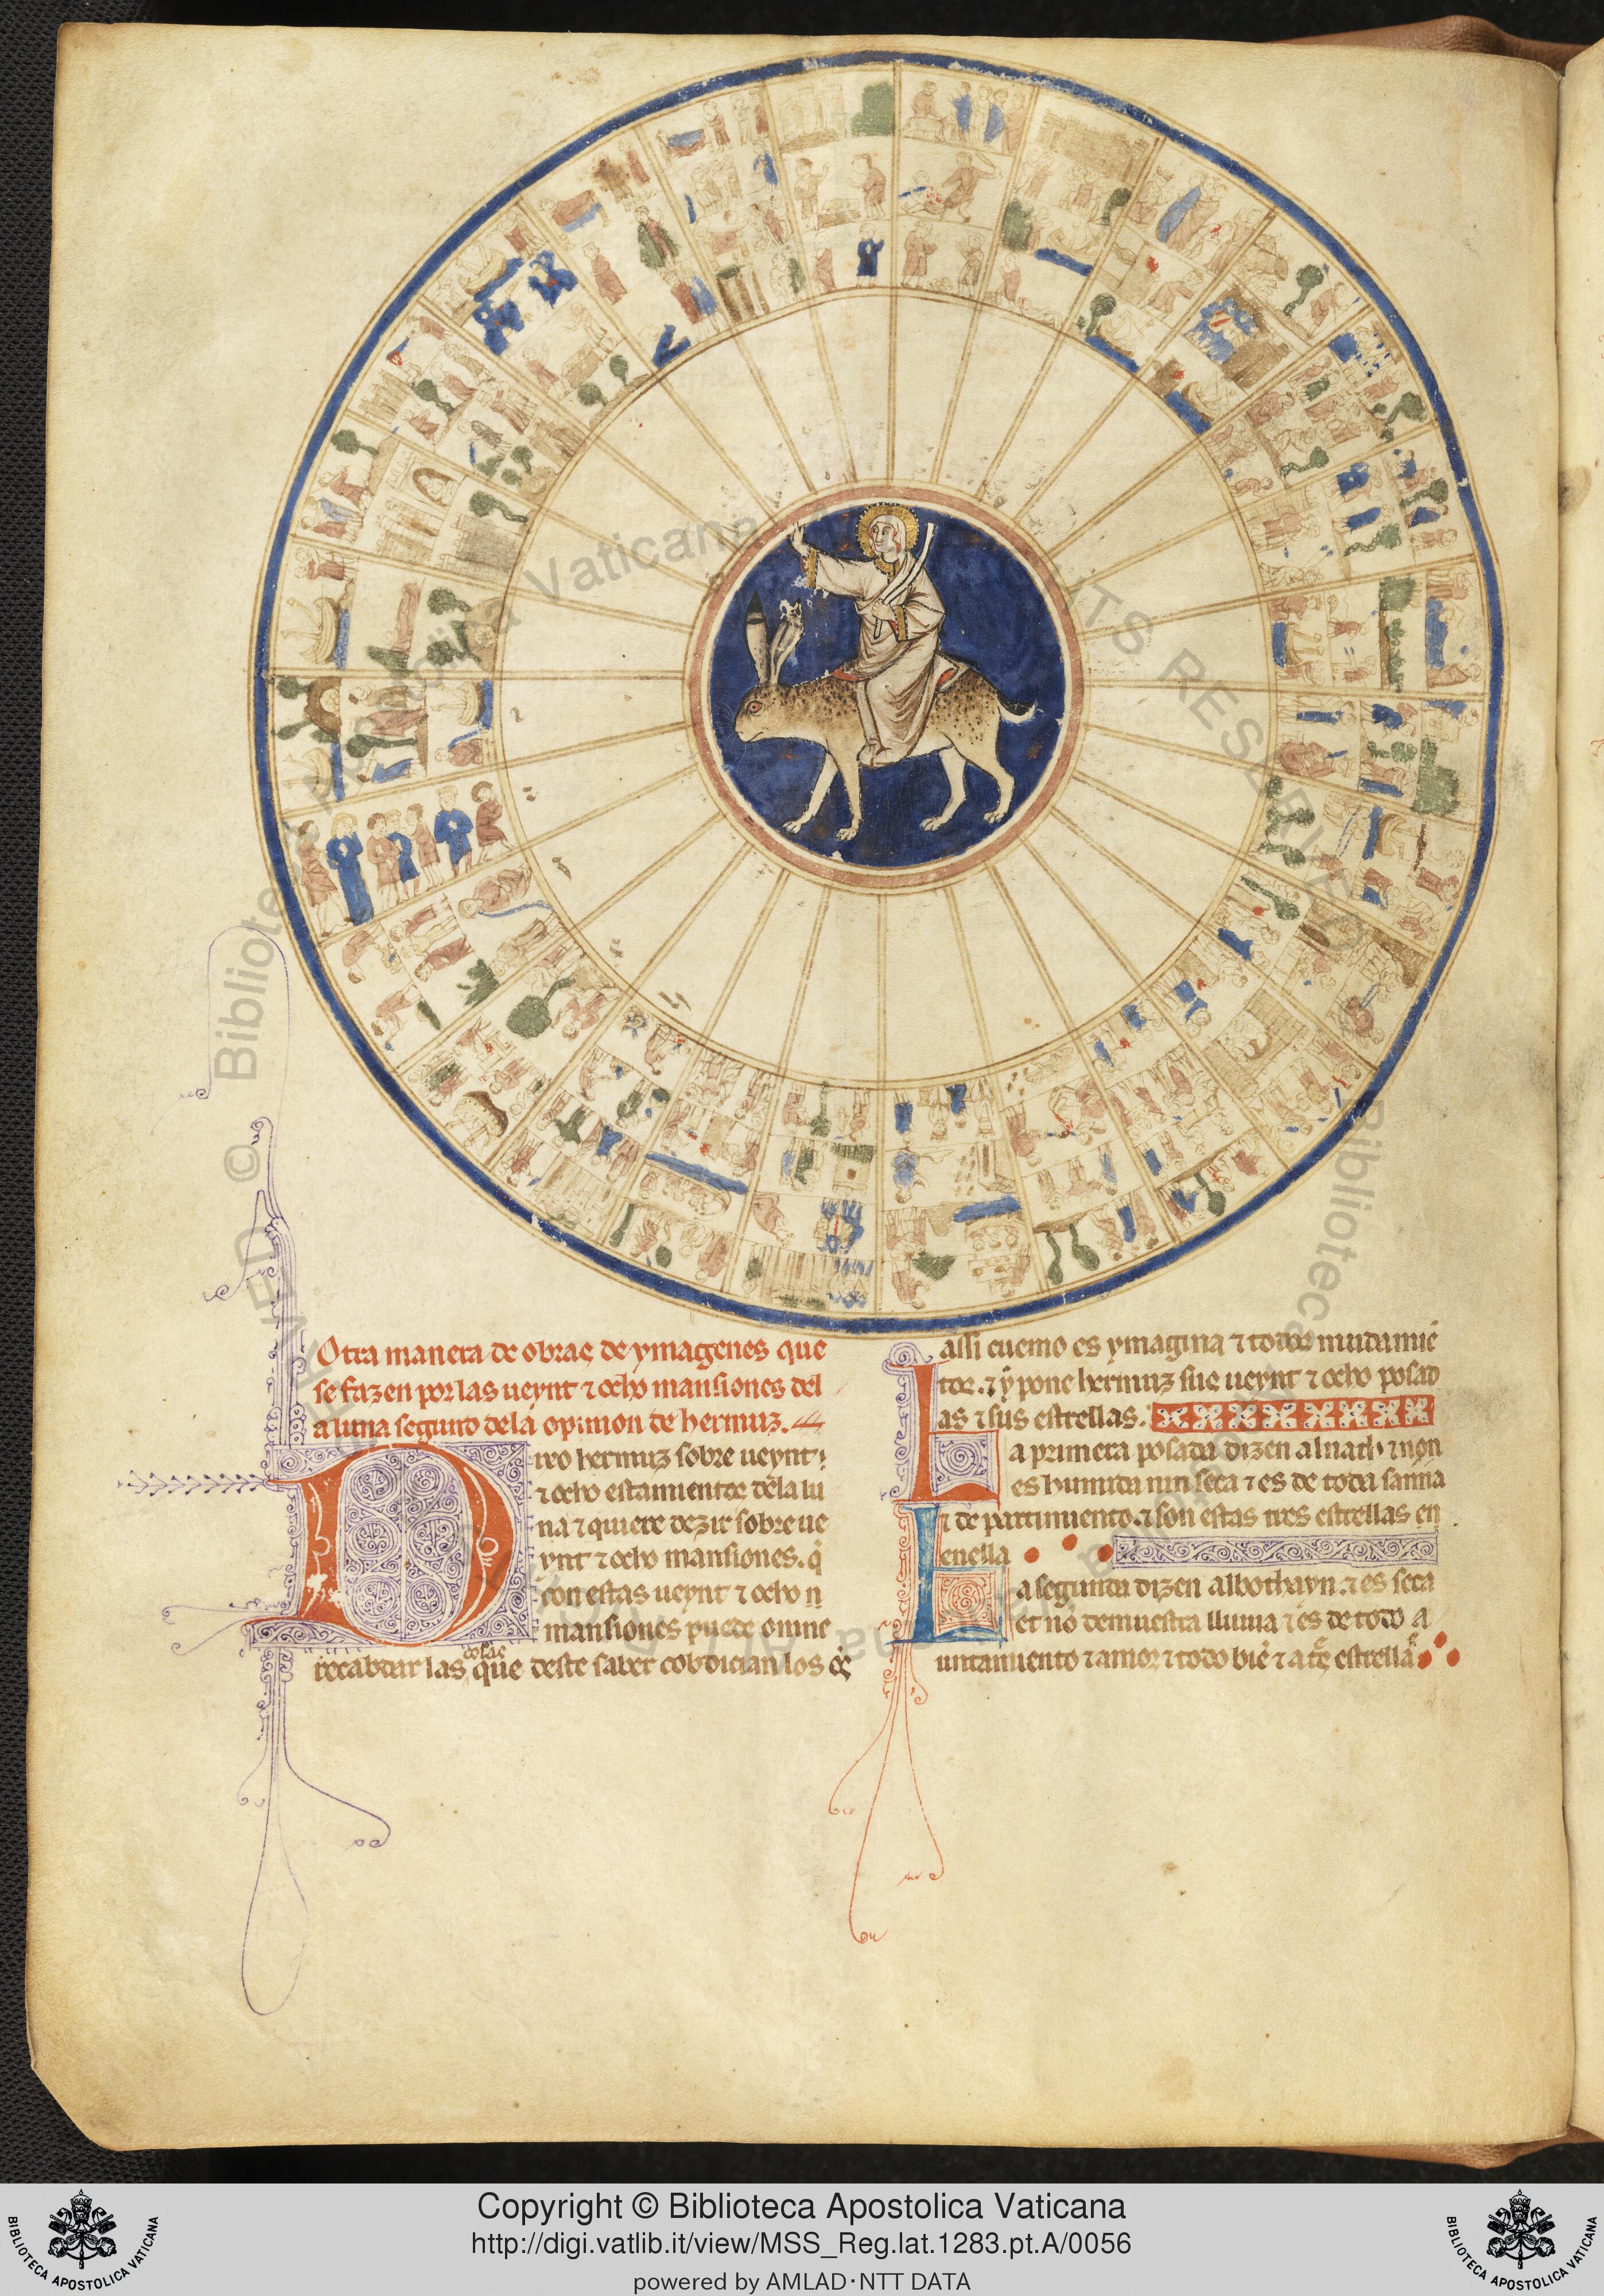 Otra manera de obras de ymagenes que
se fazen por las ueynt ⁊ ocho mansiones del
a luna segund dela opinion de hermuz.
Dixo hermuz sobre ueynt
⁊ ocho estamientos dela lu
na ⁊ quiere dezir sobre ue
ynt ⁊ ocho mansiones. q̇
con estas ueynt ⁊ ocho
mansiones puede omne
recabdar las cosas que deste saber cobdician los
assi cuemo es ymagina ⁊ todos mudamiē
tos. ⁊ ẏ pone hermuz sus ueynt ⁊ ocho posad
as ⁊ sus estrellas.
La primera posada dizen alnath ⁊ non
es humida nin seca ⁊ es de toda sanna
⁊ de partimiento. ⁊ son estas tres estrellas en
enella
La segunda dizen albothayn. ⁊ es seca
et nō demuestra lluuia ⁊ es de todo a
untamiento ⁊ amor ⁊ todo biē ⁊ estrellas
© Biblioteca Apostolica Vaticana
RIGHTS RESERVED
Copyright © Biblioteca Apostolica Vaticana
http://digi.vatlib.it/view/MSS_Reg.lat.1283.pt.A/0056
powered by AMLAD·NTT DATA
BIBLIOTECA APOSTOLICA VATICANA
BIBLIOTECA APOSTOLICA VATICANA